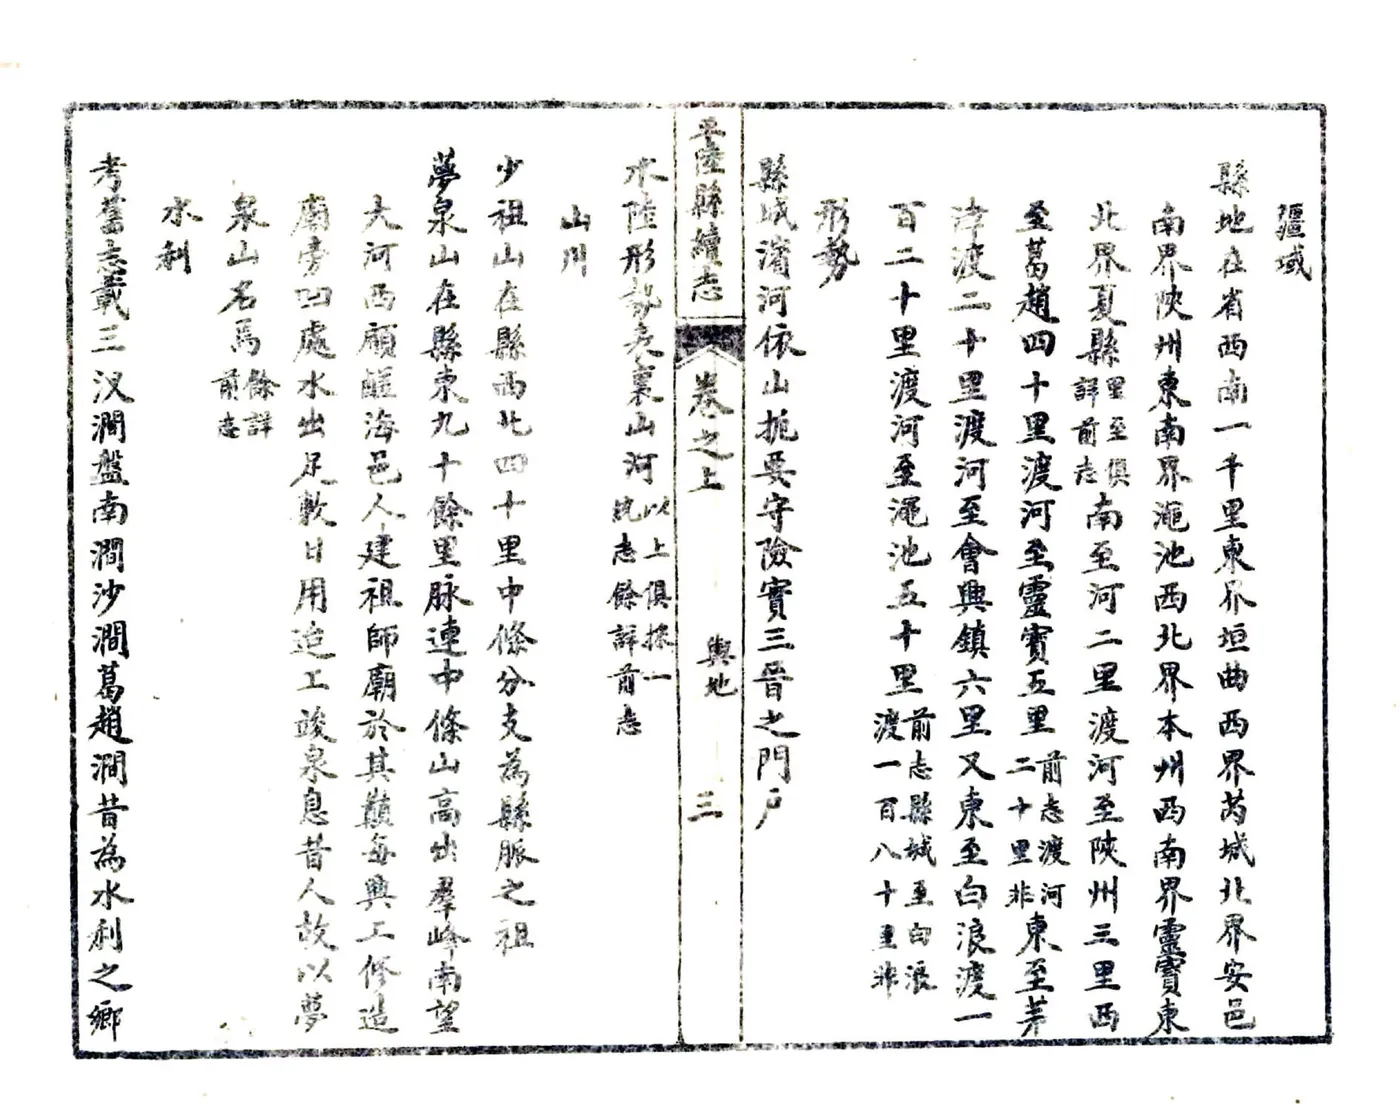 疆域
縣地在省西南一千里東界垣曲西界芮城北界安邑
南界陝州東南界澠池西北界本州西南界靈寶東
北界夏縣里至俱詳前志南至河二里渡河至陝州三里西
至葛趙四十里渡河至靈寶五里前志渡河二十里非東至茅
津渡二十里渡河至會興鎮六里又東至白浪渡一
百二十里渡河至澠池五十里前志縣城至白浪渡一百八十里非
形勢
縣城濱河依山扼要守險實三晉之門戶
平陸縣續志
卷之上
輿地
三
水陸形勢表裏山河以上俱採一統志餘詳前志
山川
少祖山在縣西北四十里中條分支為縣脈之祖
夢泉山在縣東九十餘里脉連中條山高出羣峰南望
大河西顧鹺海邑人建祖師廟於其巔每興工修造
廟旁凹處水出足敷日用迨工竣泉息昔人故以夢
泉山名焉餘詳前志
水利
考舊志載三汊澗盤南澗沙澗葛趙澗昔為水利之鄉